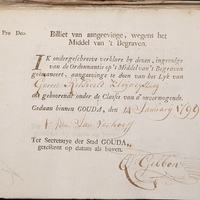 Pro Deo.
Billiet van aangeevinge, wegens het
Middel van 't Begraven.
IK ondergeschreeve verklare by deezen, ingevolge
van de Ordonnantie op 't Middel van 't Begraven
geëmaneert, aangeevinge te doen van het Lyk van
Gerrit
als gehoorende onder de Classis van d'onvermogende.
Gedaan binnen GOUDA, den January 1799
Van
Ter Secretarye der Stad GOUDA,
geteikent op datum als boven.